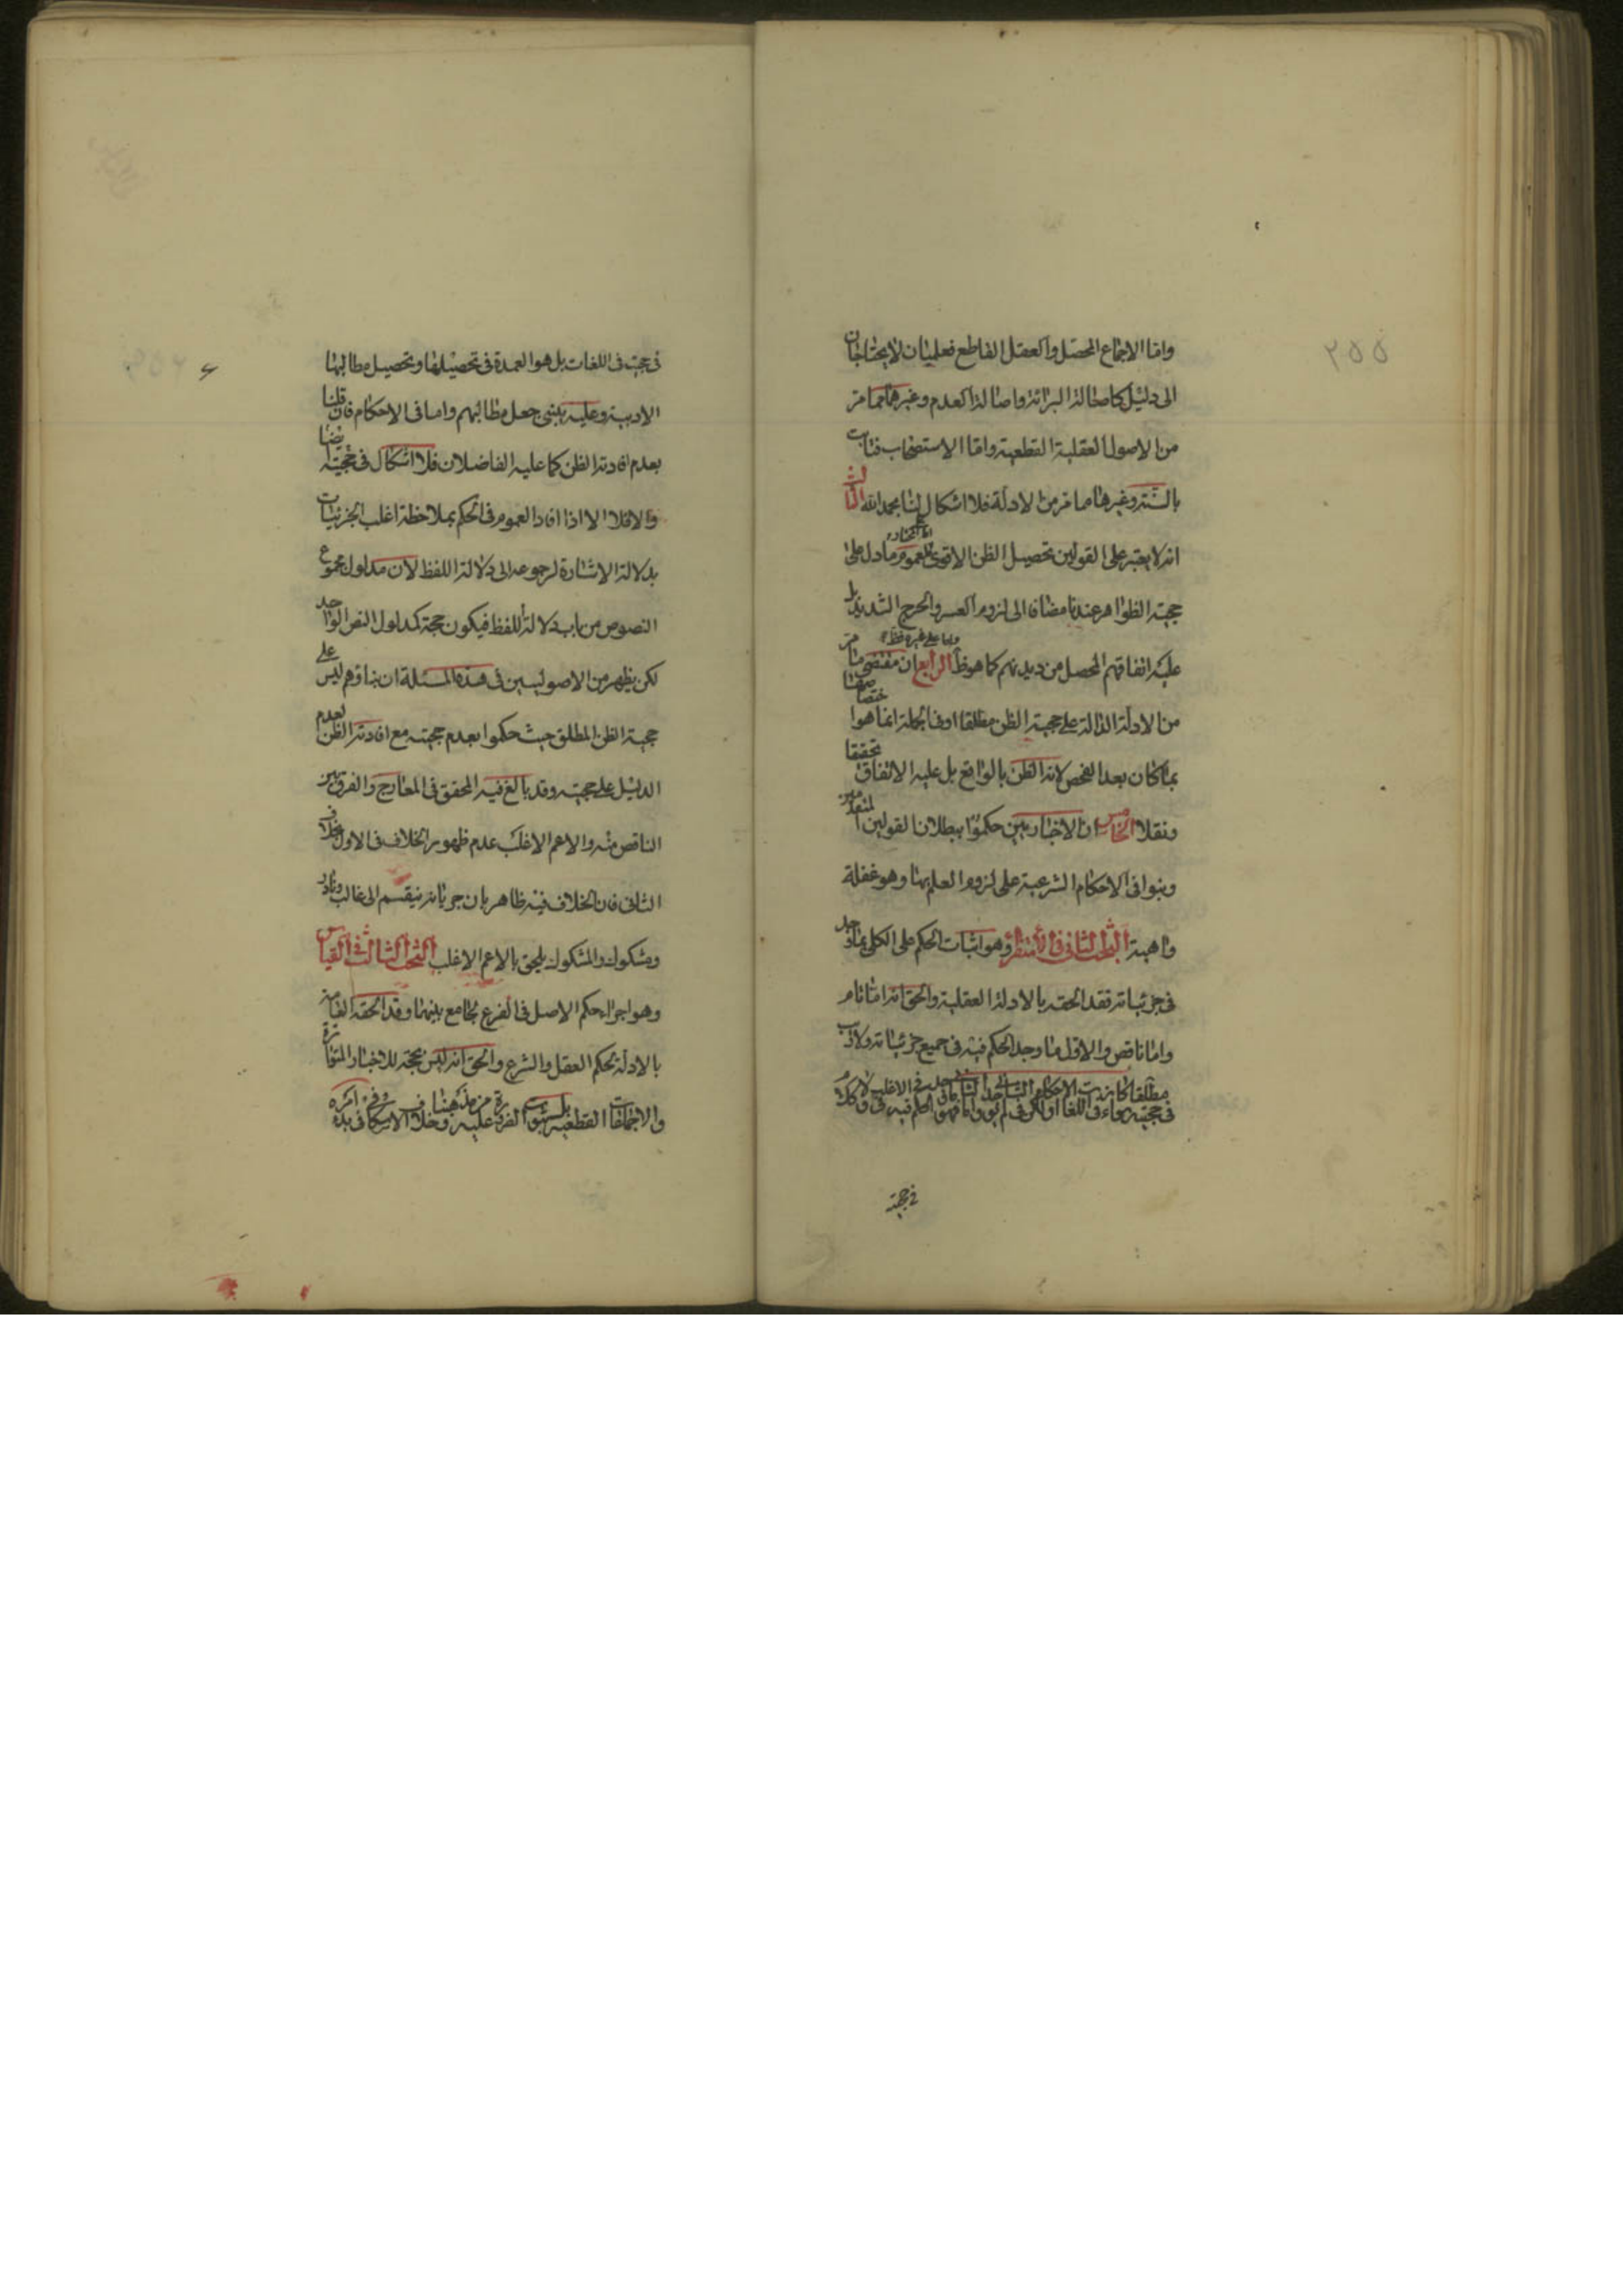 ٢٥٥
واما الاجماع المحصل والعقل القاطع فعليتان لا يحتاجان
الى دليل كاصالة البرائة واصالة العدم وغيرهما مما مر
من الاصول العقلية القطعية واما الاستصحاب فثابت
بالسنة وغيرها مما مر من الادلة فلا اشكال لنا بحمد الله الثالث
انه لا يعتبر على القولين تحصيل الظن الاقوى للعموم ما دل على
حجية الظواهر عندنا مضافا الى لزوم العسر والحرج الشديد بل
عليه اتفاقهم المحصل من ديدنهم كما هو ظ الرابع ان مقتضى ما مر
من الادلة الدالة على حجية الظن مطلقا او في الجملة انما هو اختصاصها
بما كان بعد الفحص لانه الظن بالواقع بل عليه الاتفاق تحقيقا
ونقلا الخامس ان الاخباريين حكموا ببطلان القولين المتقدمين
وبنوا في الاحكام الشرعية على لزوم العلم بها وهو غفلة
واهية البحث الثانى فى الاستقراء وهو اثبات الحكم على الكلى بما وجد
فى جزئياته فقد الحقه بالادلة العقلية والحق انه اما تام
واما ناقص والاول ما وجد الحكم فيه فى جميع جزئياته ولا ريب
فى حجيته سواء فى اللغات او
فى حجية
فى حجيته فى اللغات بل هو العمدة فى تحصيلها وتحصيل مطالبها
الادبية وعليه يبتنى جعل مطالبهم واما فى الاحكام فان قلنا
بعدم افادته الظن كما عليه الفاضلان فلا اشكال فى حجيته ايضا
والا فلا الا اذا افاد العموم فى الحكم بملاحظة اغلب الجزئيات
بدلالة الاشارة لرجوعه الى دلالة اللفظ لان مدلول مجموع
النصوص من باب دلالة اللفظ فيكون حجة كمدلول النص الواحد
لكن يظهر من الاصوليين فى هذه المسئلة ان بناؤهم ليس على
حجية الظن المطلق حيث حكموا بعدم حجيته مع افادته الظن لعدم
الدليل على حجيته وقد بالغ فيه المحقق فى المعارج والفرق بين
الناقص منه والاعم الاغلب عدم ظهور الخلاف فى الاول بخلاف
الثانى فان الخلاف فيه ظاهر بان جريانه ينقسم الى غالب ونادر
ومشكوك والمشكوك يلحق بالاعم الاغلب البحث الثالث فى القياس
وهو اجراء حكم الاصل فى الفرع لجامع بينهما وقد الحقه العامة
بالادلة بحكم العقل والشرع والحق انه ليس بحجة للاخبار المتواترة
والاجماعات القطعية بل ثبوت الضرورة من مذهبنا عليه وخلاف الاسكافى فى بدء امره